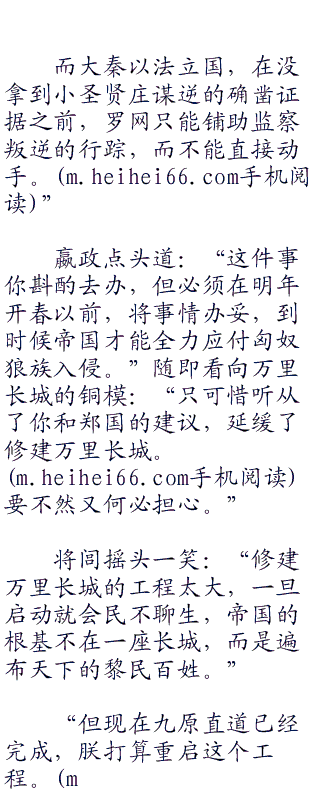 而大秦以法立国，在没
拿到小圣贤庄谋逆的确凿证
据之前，罗网只能铺助监察
叛逆的行踪，而不能直接动
手。(m.heihei66.com手机阅
读)”
嬴政点头道：“这件事
你斟酌去办，但必须在明年
开春以前，将事情办妥，到
时候帝国才能全力应付匈奴
狼族入侵。”随即看向万里
长城的铜模：“只可惜听从
了你和郑国的建议，延缓了
修建万里长城。
(m.heihei66.com手机阅读)
要不然又何必担心。”
将闾摇头一笑：“修建
万里长城的工程太大，一旦
启动就会民不聊生，帝国的
根基不在一座长城，而是遍
布天下的黎民百姓。”
“但现在九原直道已经
完成，朕打算重启这个工
程。(m